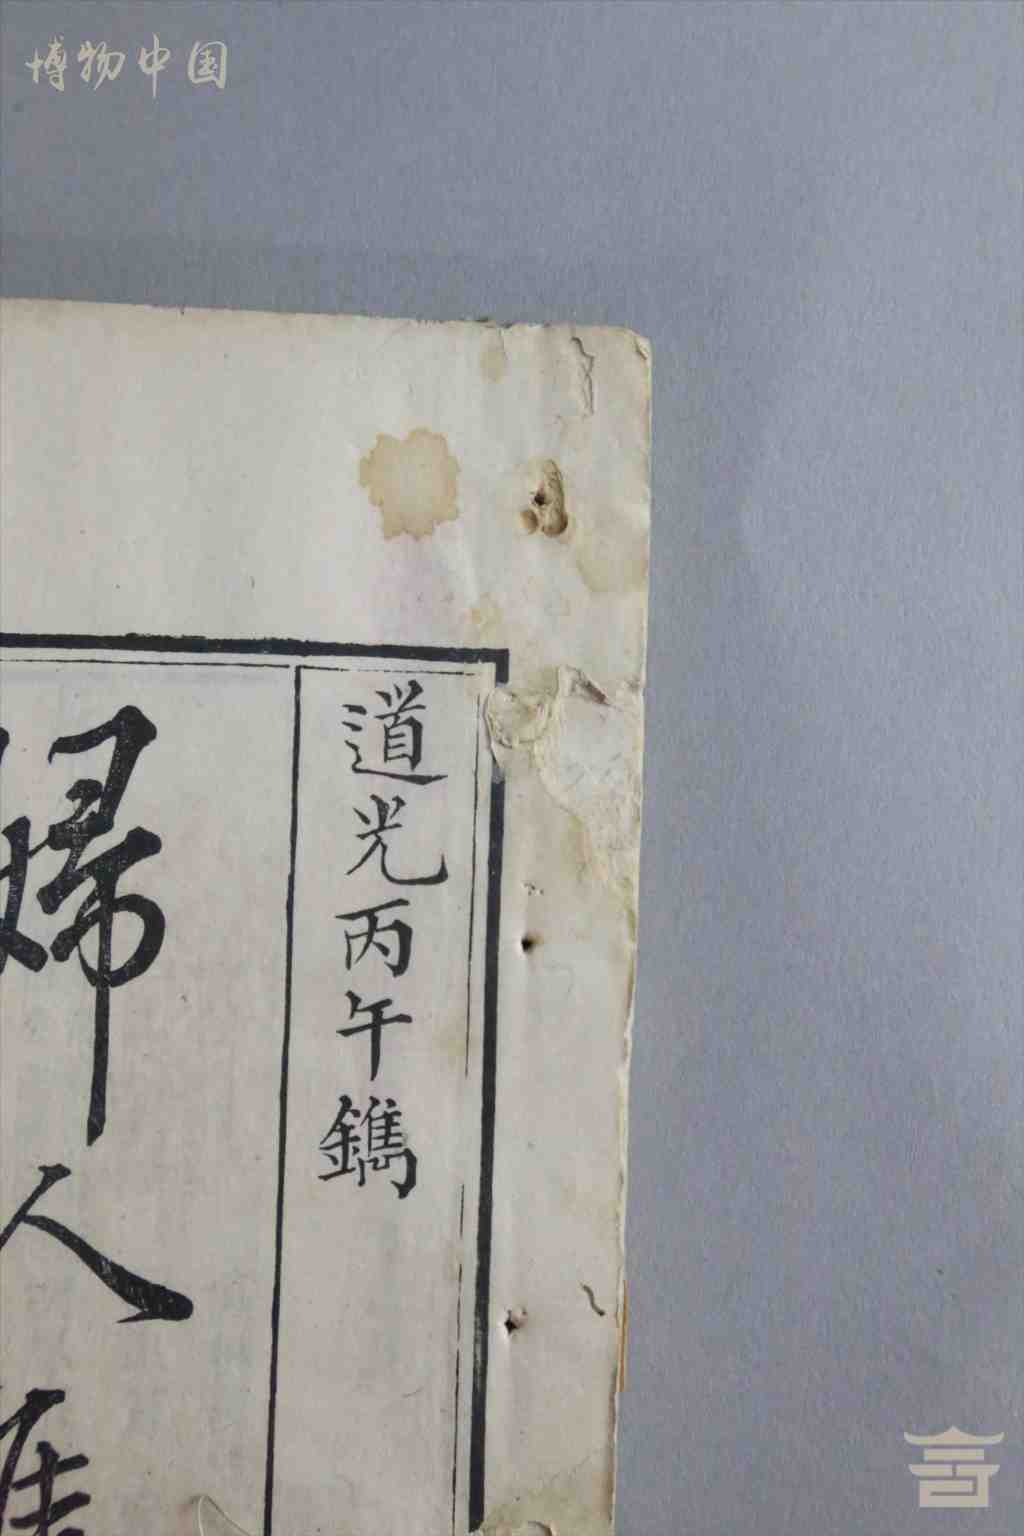 博物中国
道光丙午鐫
婦人